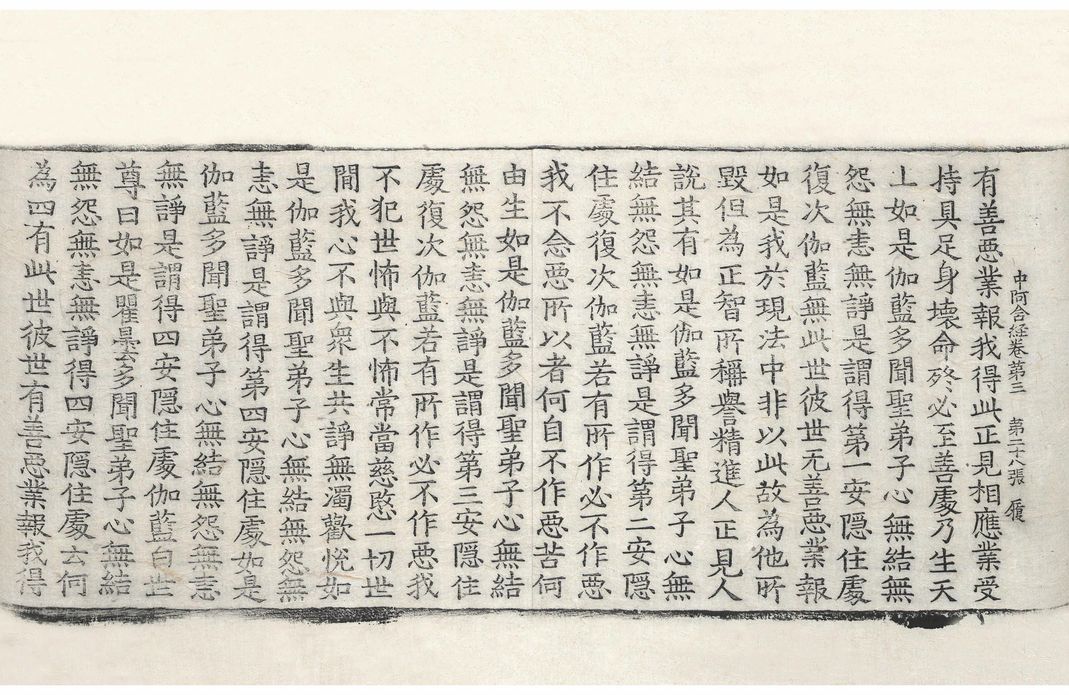 中阿含經卷第三 第二十八張 履
有善惡業報我得此正見相應業受
持具足身壞命終必至善處乃生天
上如是伽藍多聞聖弟子心無結無
怨無恚無諍是謂得第一安隱住處
復次伽藍無此世彼世无善惡業報
如是我於現法中非以此故為他所
毀但為正智所稱譽精進人正見人
說其有如是伽藍多聞聖弟子心無
結無怨無恚無諍是謂得第二安隱
住處復次伽藍若有所作必不作惡
我不念惡所以者何自不作惡苦何
由生如是伽藍多聞聖弟子心無結
無怨無恚無諍是謂得第三安隱住
處復次伽藍若有所作必不作惡我
不犯世怖與不怖常當慈愍一切世
間我心不與衆生共諍無濁歡悅如
是伽藍多聞聖弟子心無結無怨無
恚無諍是謂得第四安隱住處如是
伽藍多聞聖弟子心無結無怨無恚
無諍是謂得四安隱住處伽藍白世
尊曰如是瞿曇多聞聖弟子心無結
無怨無恚無諍得四安隱住處云何
為四有此世彼世有善惡業報我得